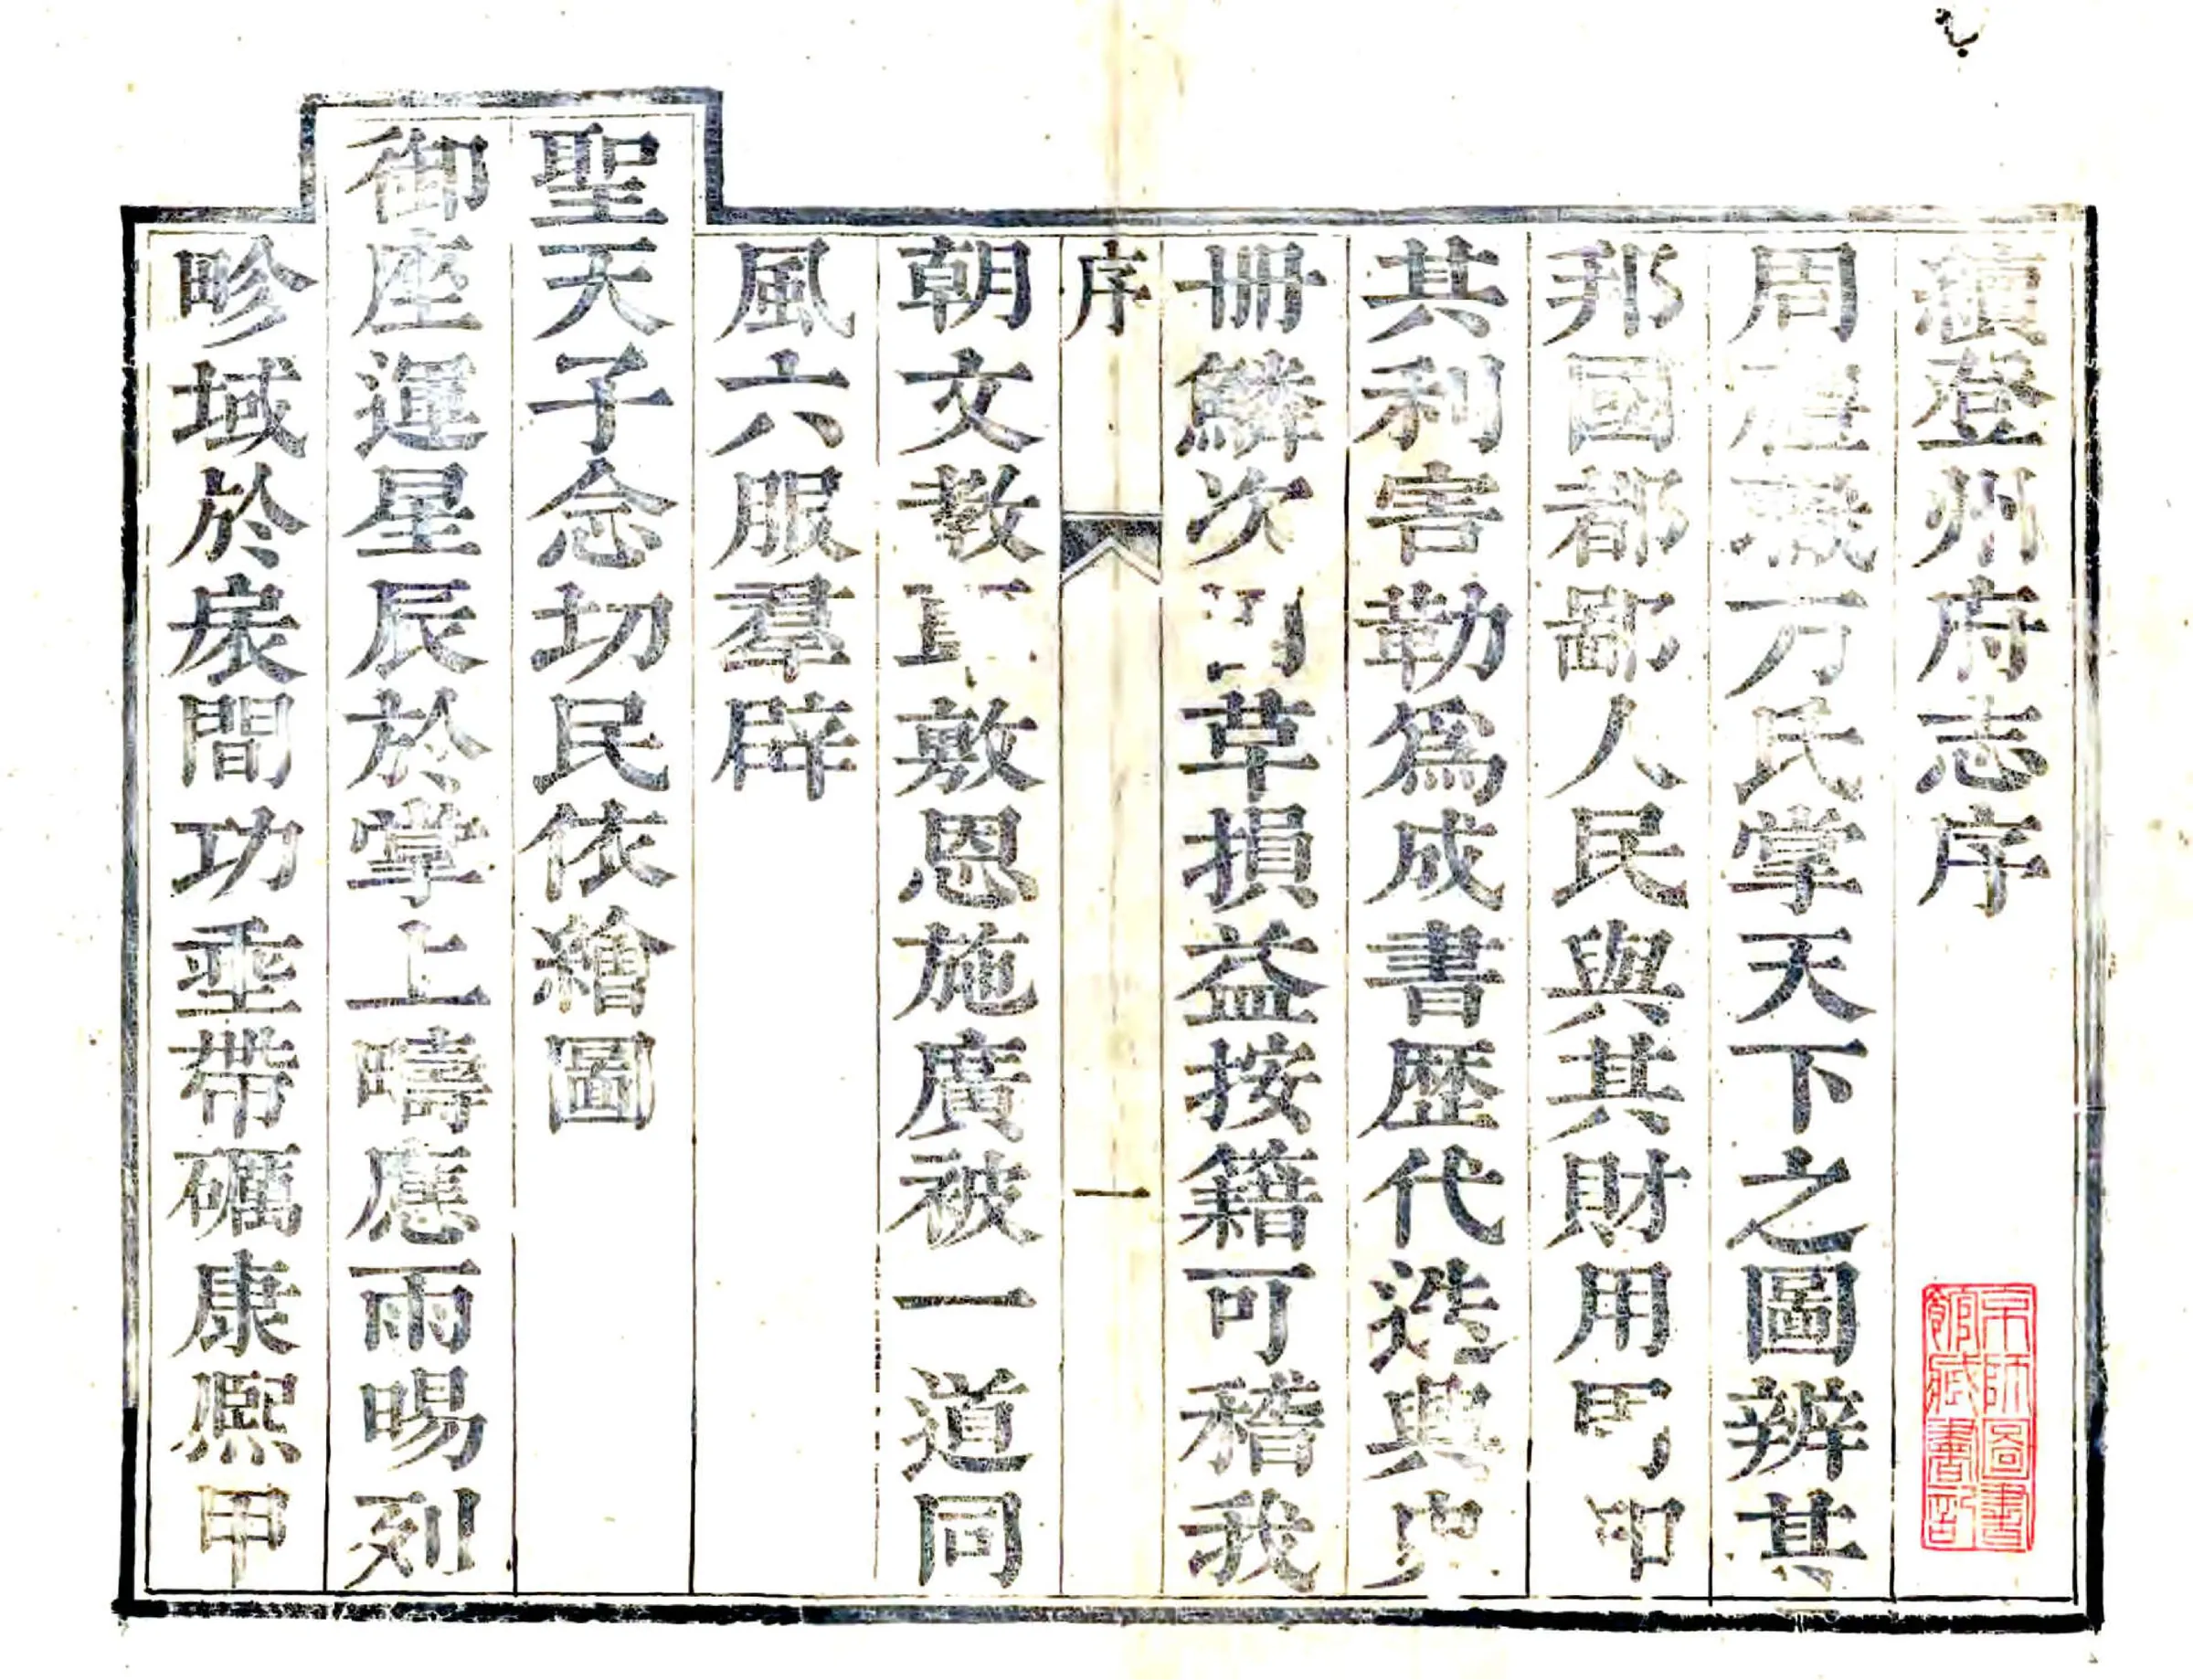 續登州府志序
京師圖書館藏書記
周禮職方氏掌天下之圖辨其
邦國都鄙人民與其財用
其利害勒爲成書歴代迭興史
冊鱗次草損益按籍可稽我
序 一
朝文教敷恩施廣被一道同
風六服羣辟
聖天子念切民依繪圖
御座運星辰於掌上疇應雨暘列
畛域於扆間功垂帶礪康熙甲